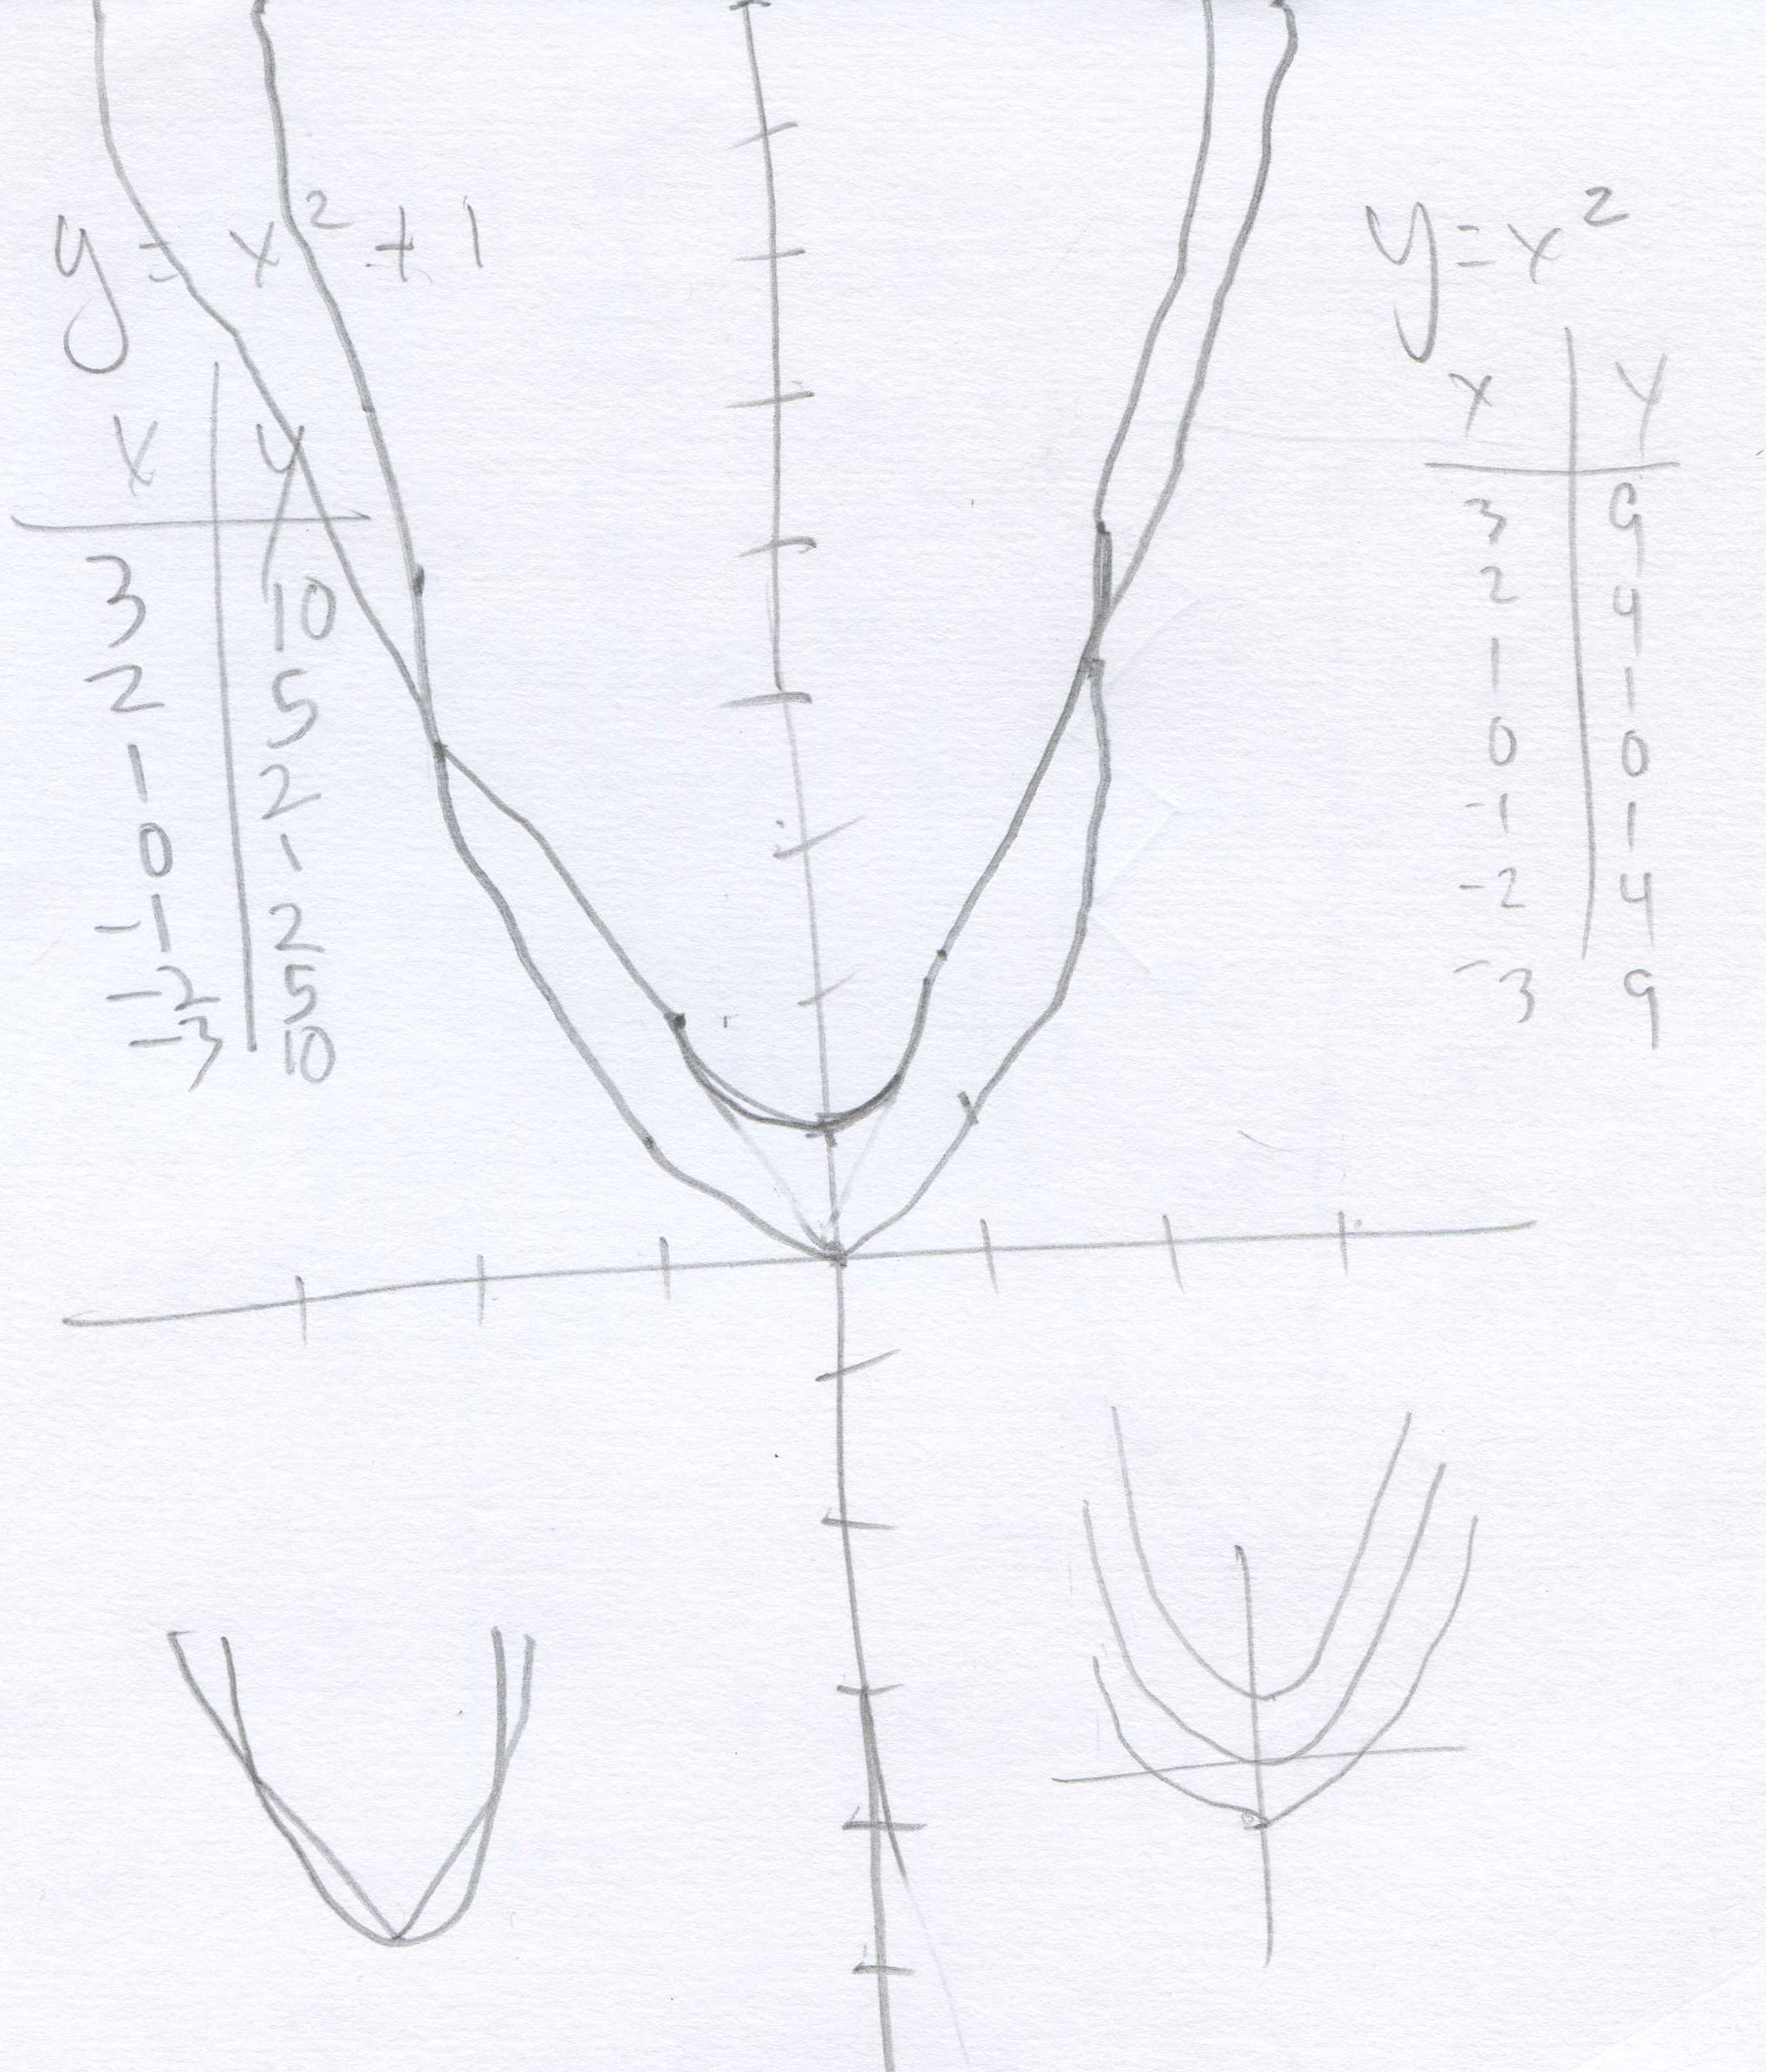 y = x² + 1
x y
3 10
2 5
1 2
0 1
-1 2
-2 5
-3 10
y = x²
x y
3 9
2 4
1 1
0 0
-1 1
-2 4
-3 9